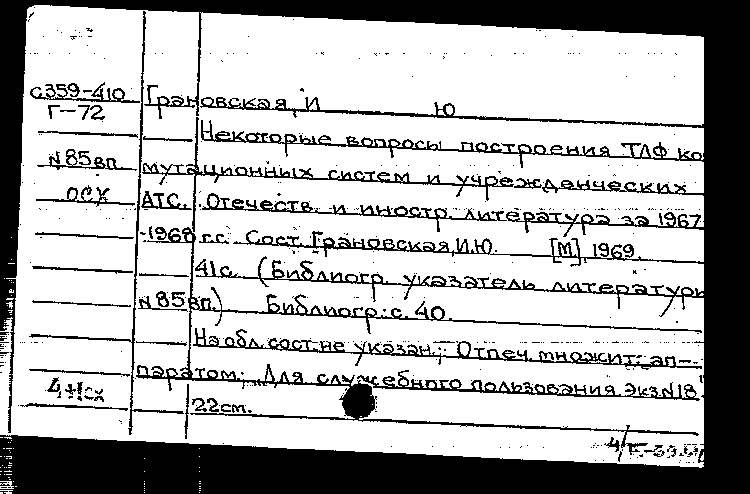 с359-410 Грановская, И Ю
Г-72
Некоторые вопросы построения ТЛФ ко
N85вп мутационных систем и учрежденческих
ОСХ АТС. Отечеств. и иностр. литература за 1967-
-1968 г.г. Сост. Грановская, И.Ю. [М], 1969.
41с. (Библиогр. указатель литературы
N85вп.) Библиогр.: с. 40.
На обл. сост. не указан.; Отпеч. множит. ап-
паратом; „Для служебного пользования. Экз N18"
22см.